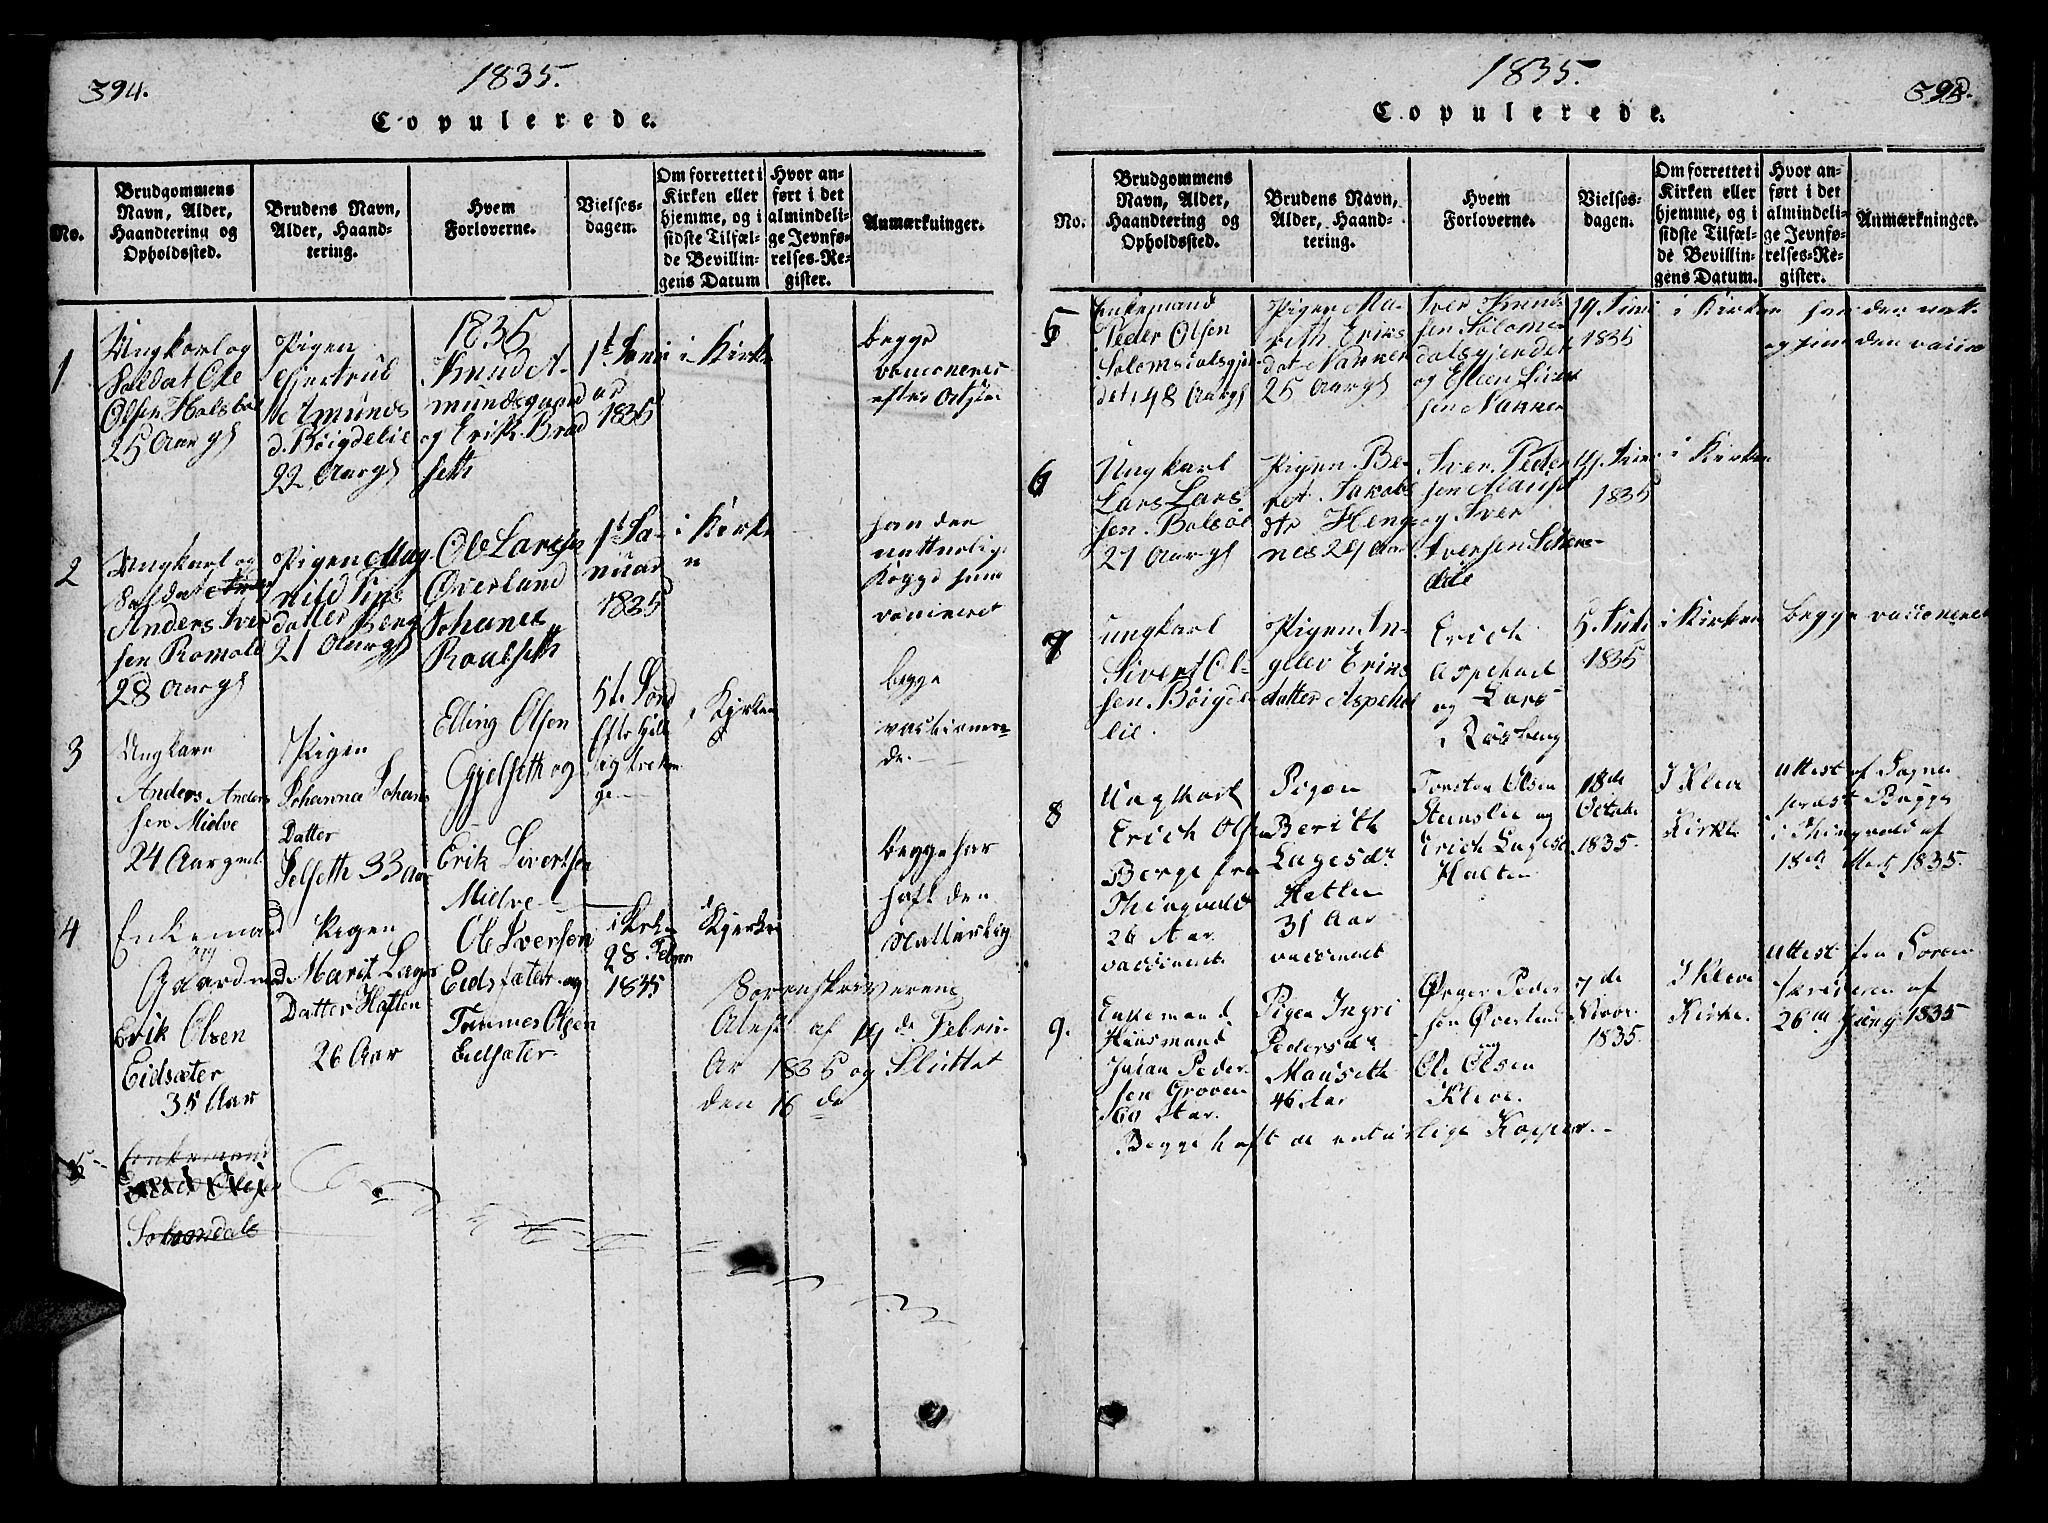 394.
1835.
Copulerede.
No.
Brudgommens
Navn, Alder,
Haandtering og
Opholdssted.
Brudens Navn,
Alder, Haand-
tering.
Hvem
Forloverne.
Vielses-
dagen.
Om forrettet i
Kirken eller
hjemme, og i
sidste Tilfæl-
de Bevillin-
gens Datum
Hvor an-
ført i det
almindeli-
ge Jevnfø-
relses-Re-
gister.
Anmærkninger.
1
Ungkarl og
Soldat Ole
Olsen
25 Aar gl
Pigen
Gertrud
Amunds
d. Bøigdelie
22 Aar gl
1835
Knud A-
mundsgaard
og Erik Brad
seth
1t Janu
ar
1835
i Kirke
begge
2
Ungkarl og
Soldat
Anders Iver
sen Romold
28 Aar gl
Pigen Mag
nild Fins
datter Berg
21 Aar gl
Ole Larsen
Øverland
Johanes
Roalseth
1t Ja-
nuar
1835
i Kirke
n
han den
naturlig
3
Ungkarn
Anders Anders
sen Midve
24 Aar gml
Pigen
Johanna Johans
Datter
Selseth 33 Aar
Elling Olsen
Gjelseth og
Erik Sivertsen
Midve
5t. Sønd
Efter Hell
ig treko
ge
i Kjrken
begge
4
Enkemand
og
Gaardmd
Erik Olsen
Eidsæter
35 Aar
Pigen
Marit Lages
Datter Haften
26 Aar
Ole Iversen
Eidsæter og
Tommes Olsen
Eidsæter
28 Febru
1835
i Kjerke
begge har
haft den
Natturlig
Sorenskriverens
Atest af 14 de Febru
Ar 1835 og Sluttet
den 16 de
5
Enkemand
Solomdals
1835.
395.
Copulerede.
No.
Brudgommens
Navn, Alder,
Haandtering og
Opholdssted.
Brudens Navn,
Alder, Haand-
tering.
Hvem
Forloverne.
Vielses-
dagen.
Om forrettet i
Kirken eller
hjemme, og i
sidste Tilfæl-
de Bevillin-
gens Datum.
Hvor an-
ført i det
almindeli-
ge Jevnfø-
relses-Re-
gister.
Anmærkninger.
5
Enkemand
Peder Olsen
48 Aar gl
Pigen Ma-
rith Eriks
dat Nakken
25 Aar gl
Iver Knud
sen Solom
dalsgjerdet
og Esten Siver
sen Nakken
19. Juni
1835
i Kirken
han den nat.
og hun den vaccin
6
Ungkarl
Lars Lars
sen Bolsøe
27 Aar gl
Pigen Be-
ret Jakobs
dtr Heng
nes 24 Aar
Iver Peder
sen Mauset
og Iver
Iversen
19. Juni
1835
i Kirken
7
ungkarl
Sivert Ol-
sen Bøigde
lie.
Pigen In-
gelev Eriks
datter Aspehol
Erich
Aspehol
og Lars
Røsberg
5. Juli
1835
i Kirken
begge vaccineret
8
Ungkarl
Erich Olsen
Berge fra
Thingvold
26 Aar
vaccineret
Pigen
Berith
Lagesdr
Hatten
31 Aar
vaccineret
Torsten Olsen
Stenslie og
Erich Lagesen
Halten
18de
Octob.
1835.
I Kleve
Kirke
Attest af Sogne
præst Bugge
i Thingvold af
18de Maj 1835.
9.
Enkemand
Huusmand
Johan Peder
sen Groven
60 Aar.
Pigen Ingri
Pedersdr
Mauseth
46 Aar
Ørger Peder
sen Øverland
og
Ole Olsen
Kleve.
7de
Novbr
1835.
I Kleve
Kirke.
Attest fra Soren
skriveren af
26de 1835
Begge haft de naturlige Kopper.